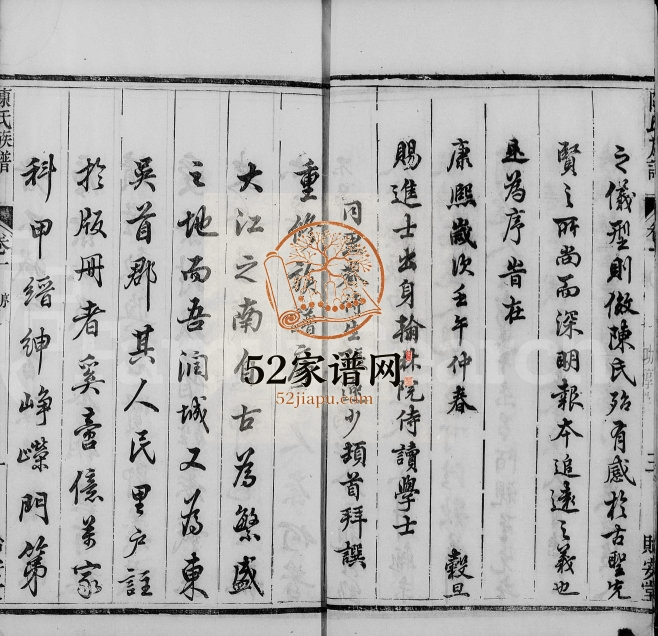 之儀型則倣陳氏殆有感於古聖先
賢之所尚而深明報本追遠之義也
是為序旹在
康熙歲次壬午仲春 穀旦
賜進士出身翰林院侍讀學士
頓首拜譔
重修族譜
大江之南 古為繁盛
之地而吾潤城又為東
吳首郡其人民里户註
扵版冊者奚啻億萬家
科甲縉紳崢嶸門第
陳氏族譜
卷一
序
52家谱网
52jiapu.com